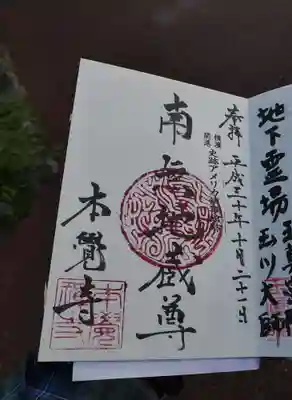 地下霊場玉川大師
奉拝 平成三十年十月二十一日
開港
史跡アメリカ
南無地蔵尊
本覺寺